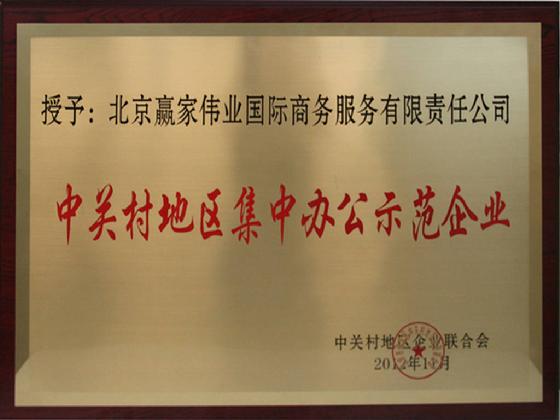 授予：北京赢家伟业国际商务服务有限责任公司
中关村地区集中办公示范企业
中关村地区企业联合会
2012年11月